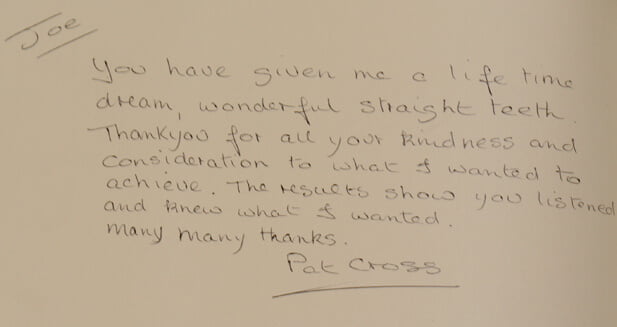 Joe
You have given me a life time
dream, wonderful straight teeth.
Thankyou for all your kindness and
consideration to what I wanted to
achieve. The results show you listened
and knew what I wanted.
Many many thanks.
Pat Cross